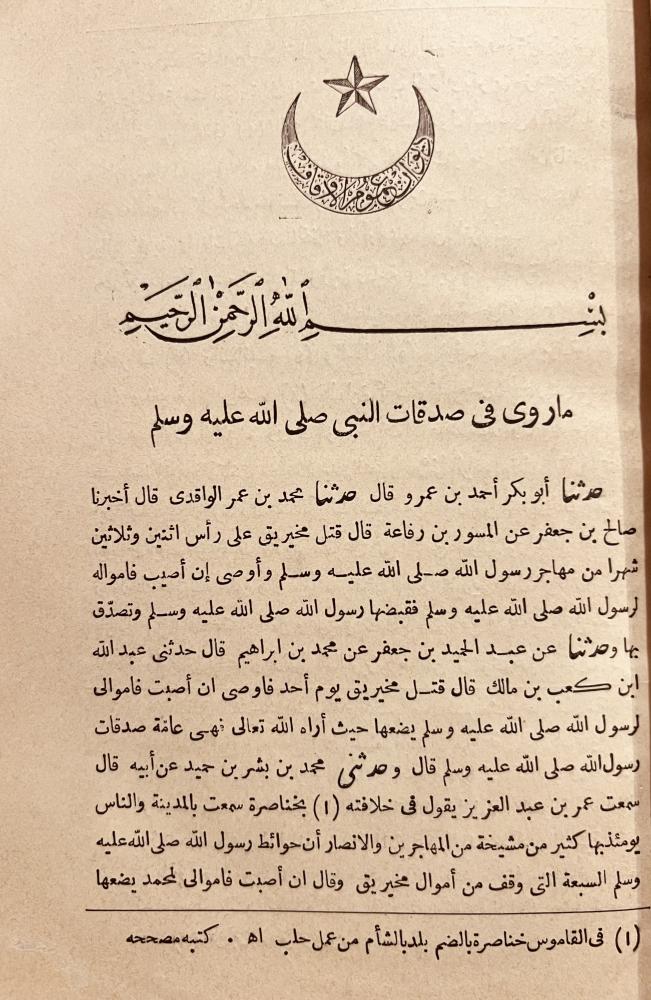 ديوان عموم الاوقاف
بِسْمِ اللّٰهِ الرَّحْمٰنِ الرَّحِيمِ
ماروى فى صدقات النبى صلى الله عليه وسلم
حدثنا أبو بكر أحمد بن عمرو قال حدثنا محمد بن عمر الواقدى قال أخبرنا
صالح بن جعفر عن المسور بن رفاعة قال قتل مخيريق على رأس اثنتين وثلاثين
شهرا من مهاجر رسول الله صلى الله عليه وسلم وأوصى إن أصيب فامواله
لرسول الله صلى الله عليه وسلم فقبضها رسول الله صلى الله عليه وسلم وتصدّق
بها وحدثنا عن عبد الحميد بن جعفر عن محمد بن ابراهيم قال حدثنى عبد الله
ابن كعب بن مالك قال قتل مخيريق يوم أحد فاوصى ان أصبت فاموالى
لرسول الله صلى الله عليه وسلم يضعها حيث أراه الله تعالى فهى عامّة صدقات
رسول الله صلى الله عليه وسلم قال وحدثنى محمد بن بشر بن حميد عن أبيه قال
سمعت عمر بن عبد العزيز يقول فى خلافته (١) بخناصرة سمعت بالمدينة والناس
يومئذ بها كثير من مشيخة من المهاجرين والانصار أن حوائط رسول الله صلى الله عليه
وسلم السبعة التى وقف من أموال مخيريق وقال ان أصبت فاموالى لمحمد يضعها
(١) فى القاموس خناصرة بالضم بلد بالشأم من عمل حلب اه . كتبه مصححه